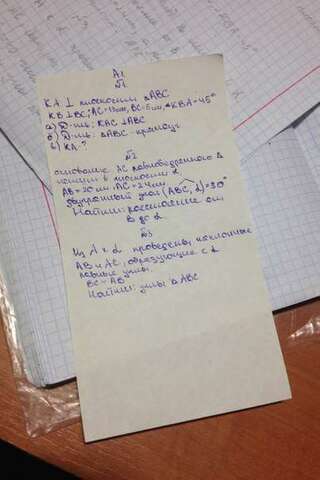 А1
№1
КА ⊥ плоскости △ABC
КВ⊥BC; AC=13см, BC=5см, ∠KBA=45°
а) Д-ть: KAC ⊥ABC
б) Д-ть: △ABC-прямоуг
в) КА-?
№2
основание АС равнобедренного △
лежит в плоскости α
АВ=20см, АС=24см
двугранный угол (ABC, α)=30°
Найти: расстояние от
В до α
№3
Из А к α проведены наклонные
АВ и АС, образующие с α
равные углы.
BC=AB
Найти: углы △ABC